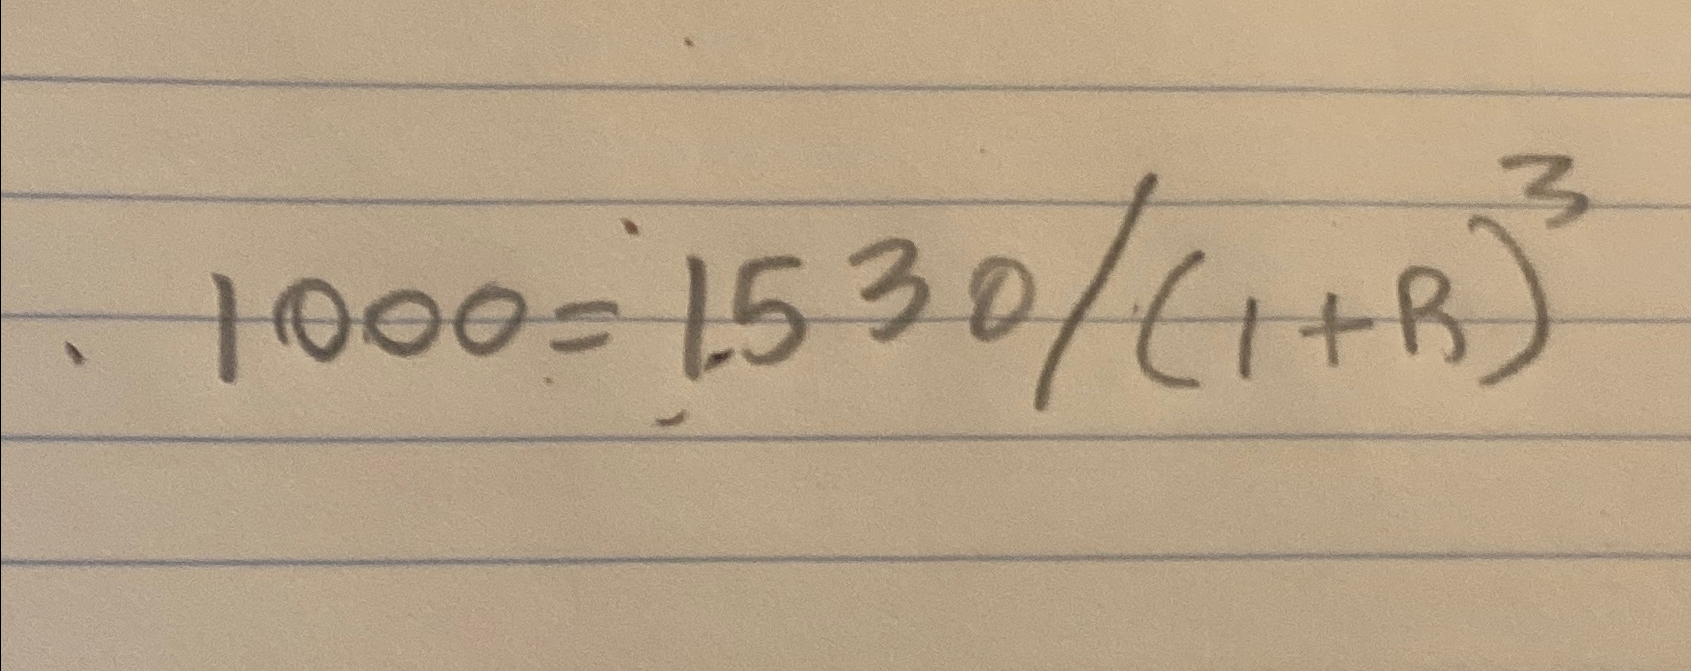 1000 = 1.530/(1+R)³